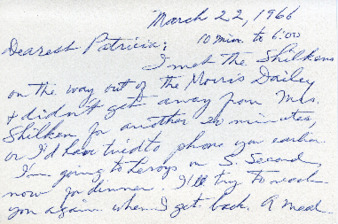 March 22, 1966
10 min. to 6:00
Dearest Patricia:
I met the Shilkens
on the way out of the Morris Dailey
+ didn't get away from Mrs.
Shilken for another 20 minutes,
or I'd have tried to phone you earlier.
I'm going to Leroys on S. Second,
now for dinner. I'll try to reach
you again when I get back. A med-